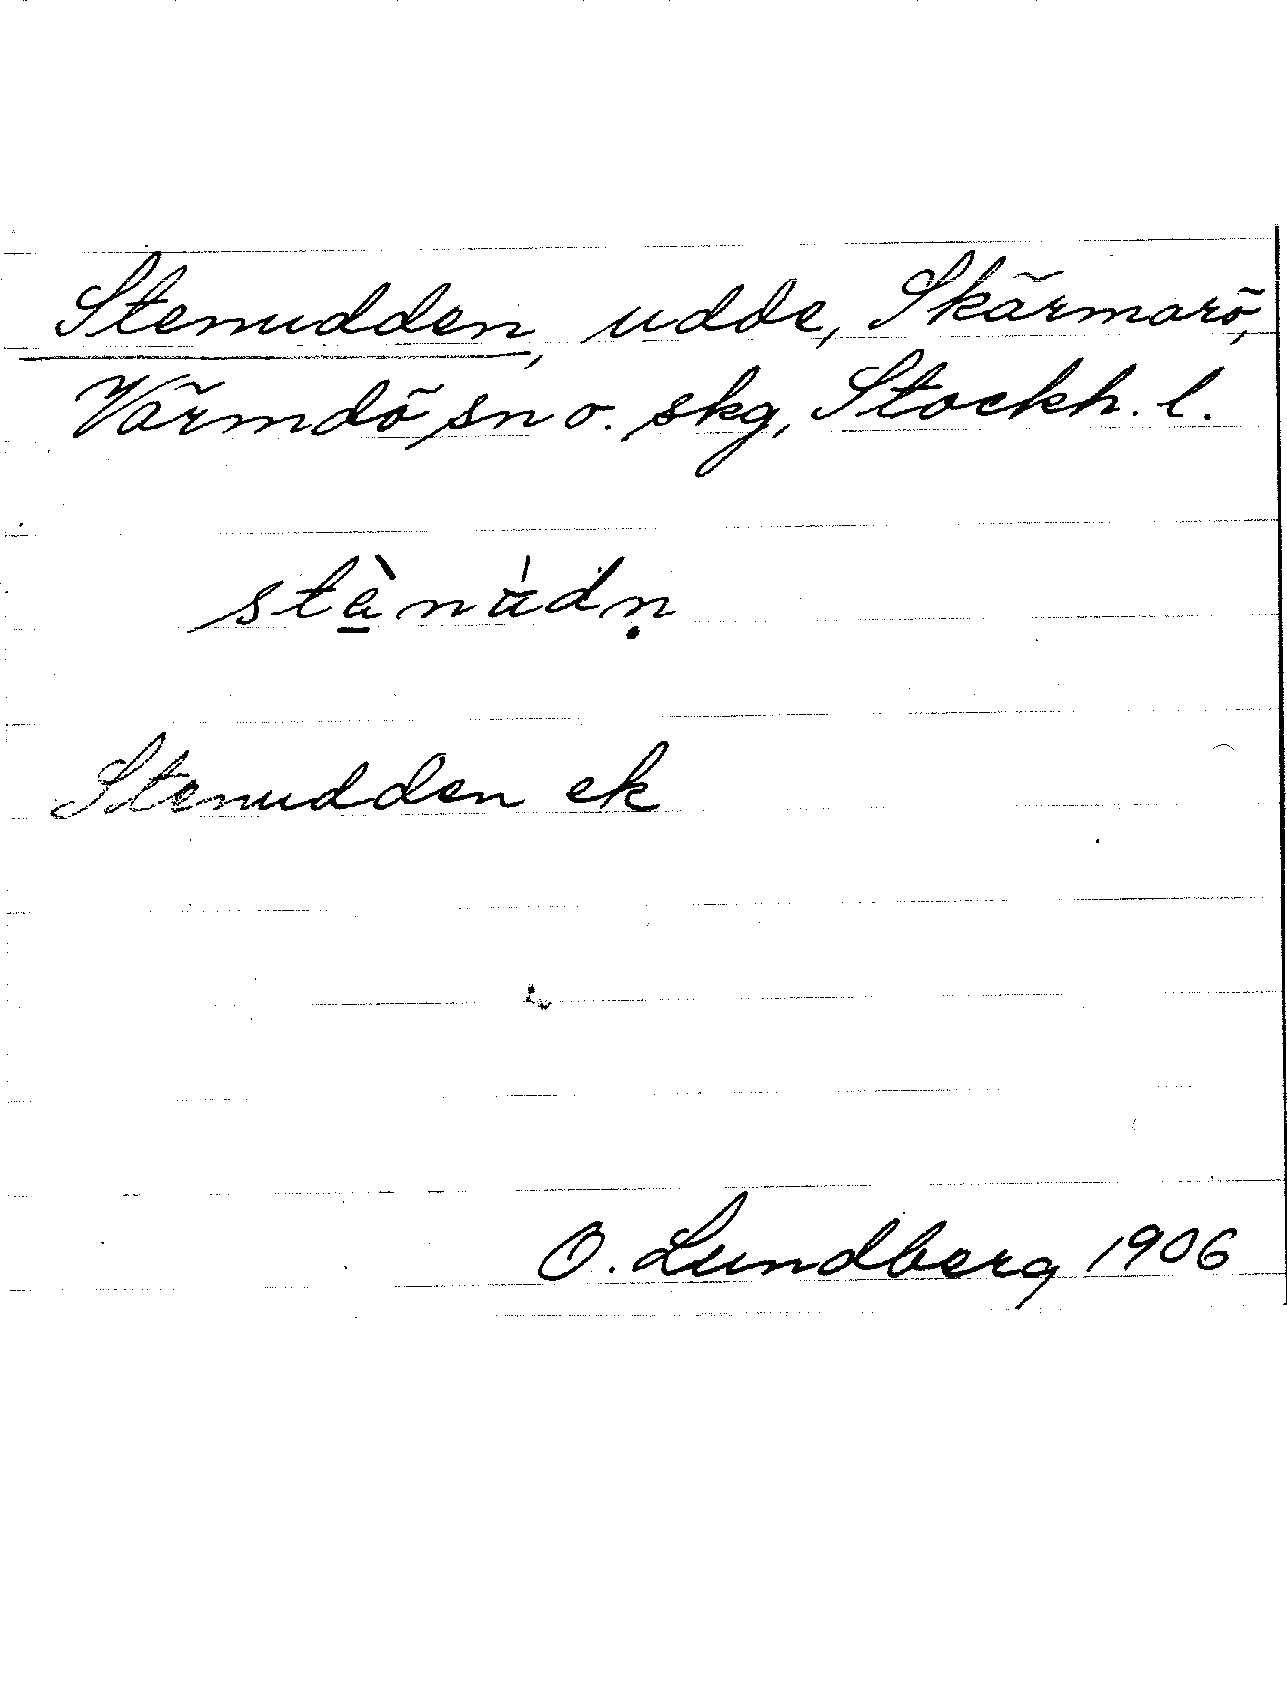 Stenudden, udde, Skärmarö,
Värmdö sn o. skg, Stockh. l.
stè̱nu̇́dṇ
Stenudden ek
O. Lundberg 1906